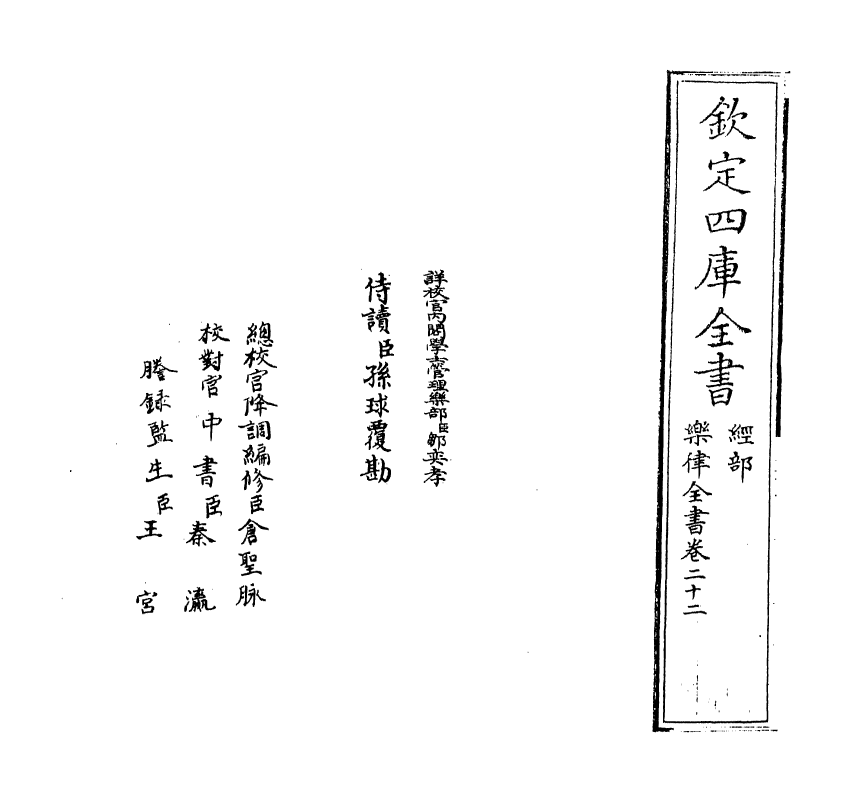 欽定四庫全書
經部
樂律全書卷二十二
詳校官內閣學士管理樂部臣鄒奕孝
侍讀臣孫球覆勘
總校官降調編修臣倉聖脉
校對官中書臣秦瀛
謄録監生臣王宮